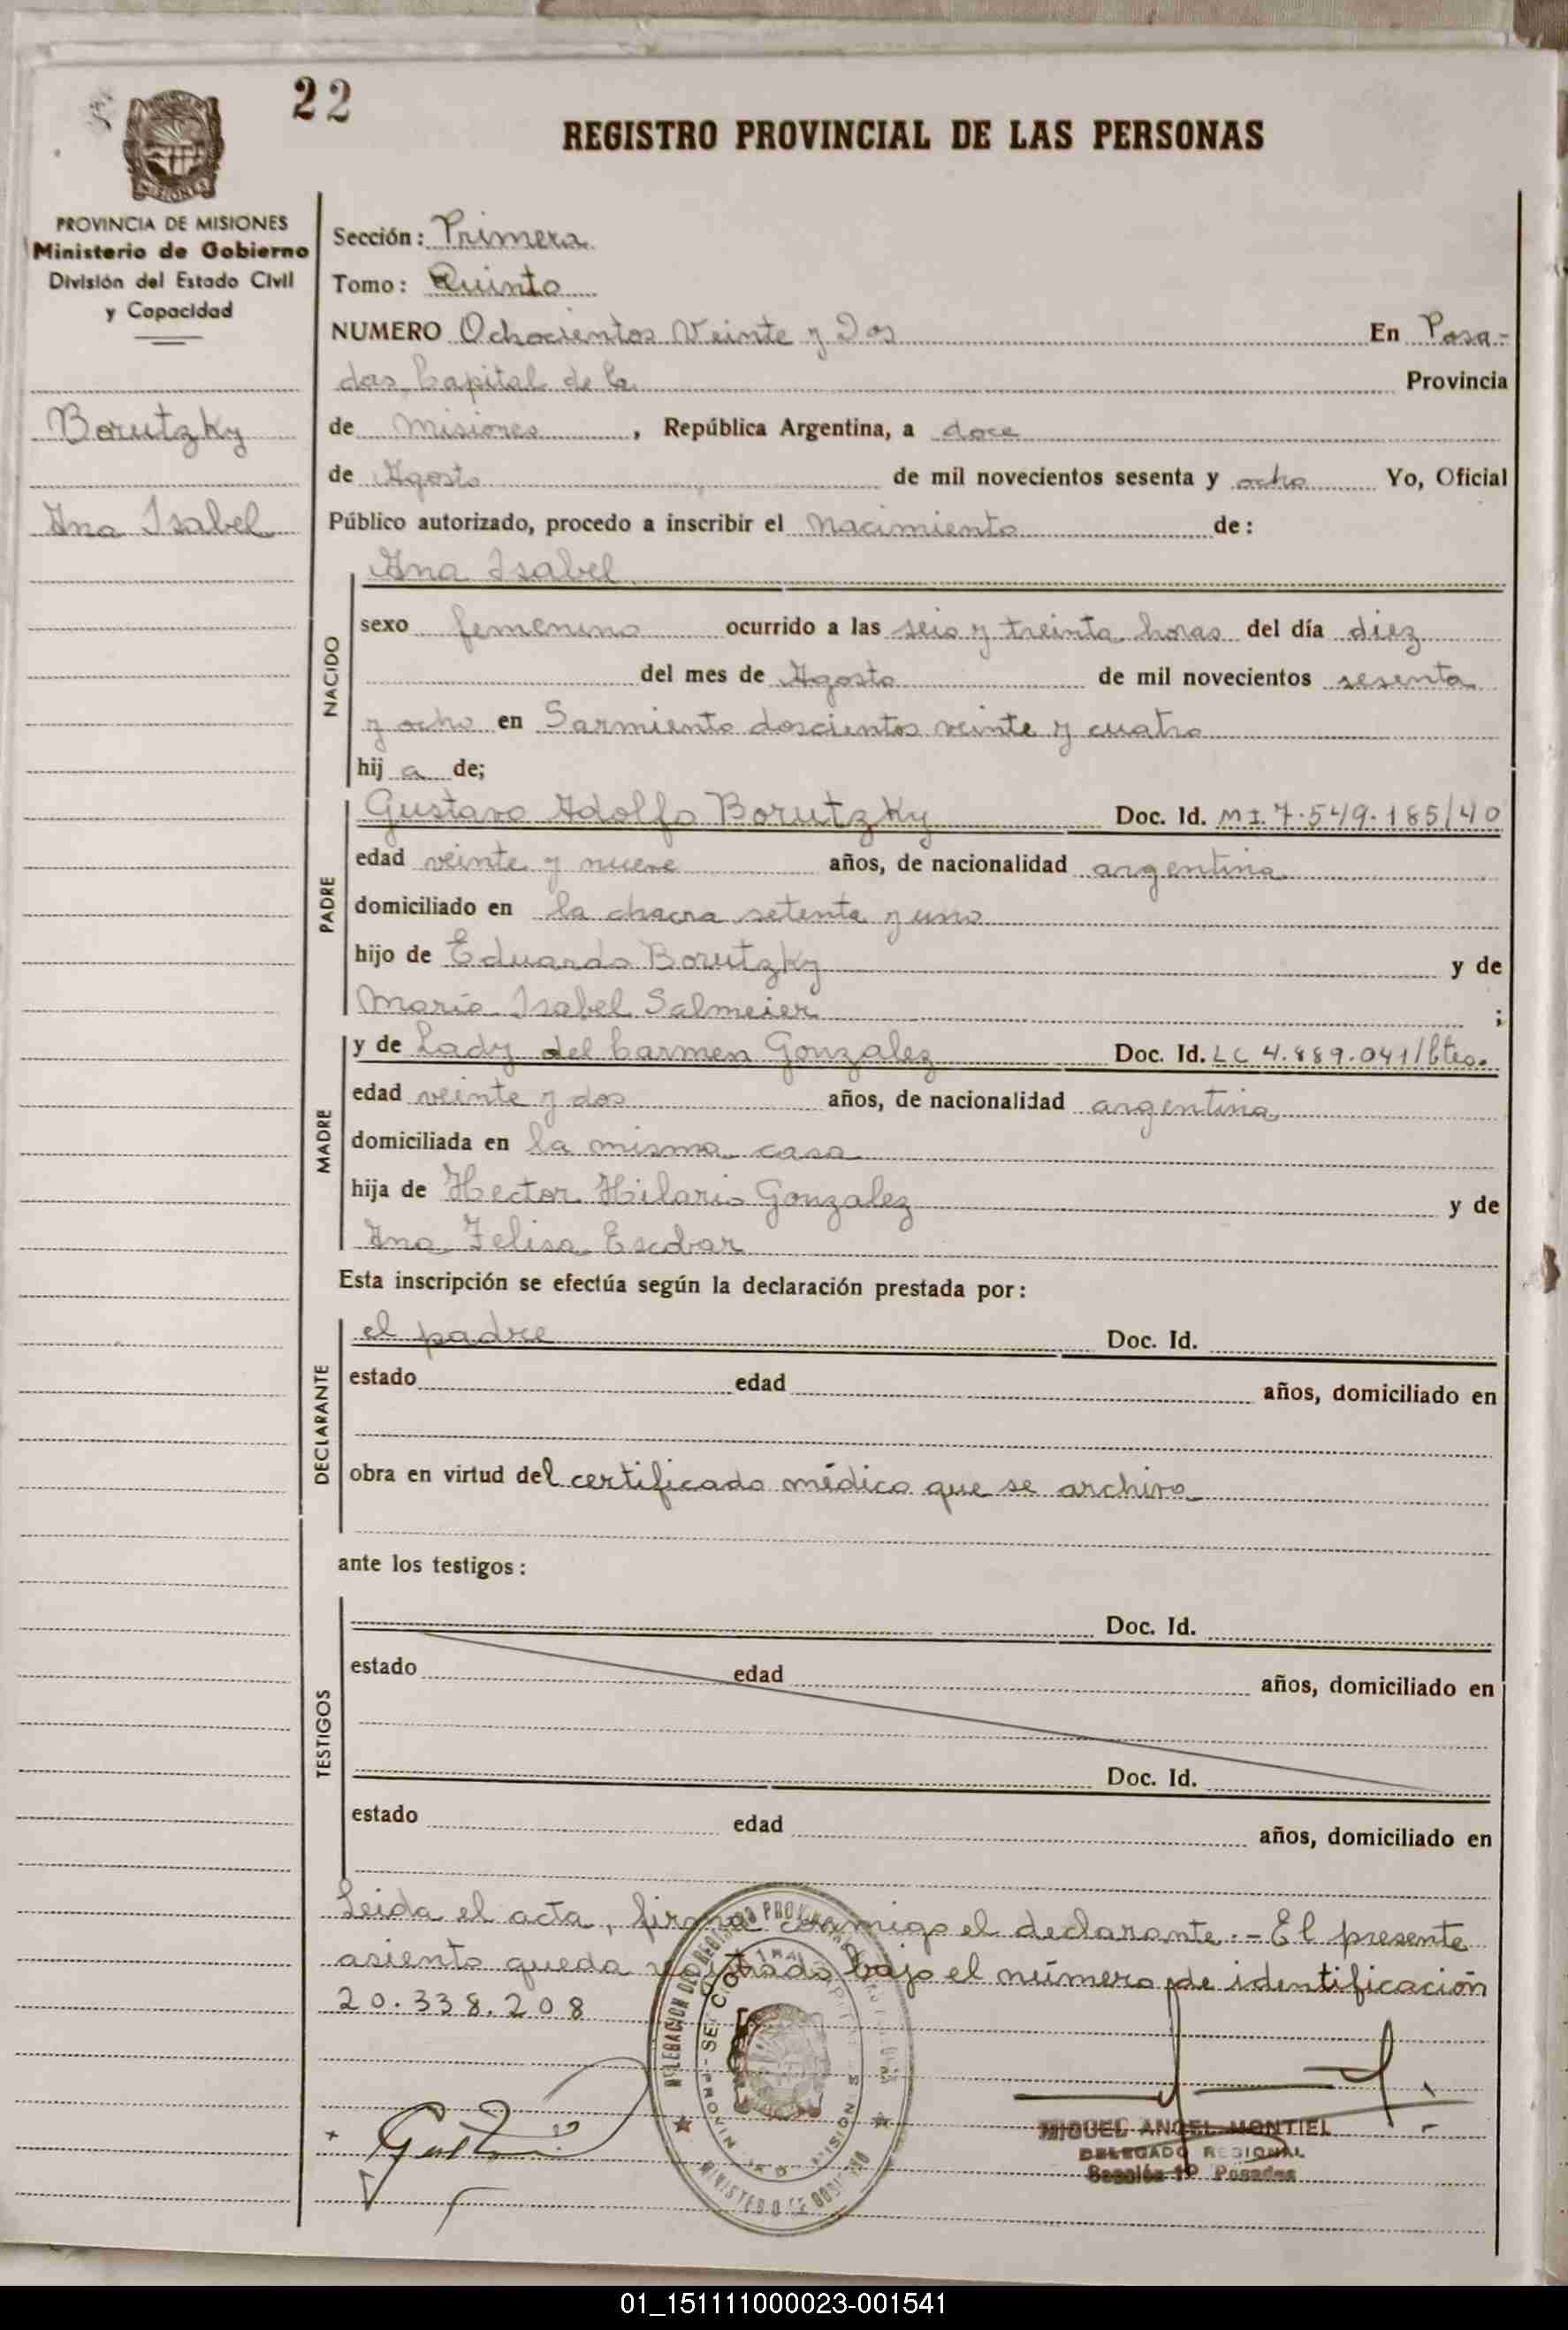 22
REGISTRO PROVINCIAL DE LAS PERSONAS
PROVINCIA DE MISIONES
Ministerio de Gobierno
División del Estado Civil
y Capacidad
Borutzky
Ana Isabel
Sección: Primera
Tomo: Quinto
NUMERO Ochocientos Veinte y Dos En Posa-
das Capital de la Provincia
de Misiones, República Argentina, a doce
de Agosto de mil novecientos sesenta y ocho Yo, Oficial
Público autorizado, procedo a inscribir el Nacimiento de:
NACIDO
Ana Isabel
sexo femenino ocurrido a las seis y treinta horas del día diez
del mes de Agosto de mil novecientos sesenta
y ocho en Sarmiento doscientos veinte y cuatro
hij a de;
PADRE
Gustavo Adolfo Borutzky Doc. Id. M I. 7.549.185/40
edad veinte y nueve años, de nacionalidad argentina
domiciliado en la chacra setenta y uno
hijo de Eduardo Borutzky y de
Maria Isabel Salmeier ;
MADRE
y de Lady del Carmen Gonzalez Doc. Id. L C 4.889.041/Ctes.
edad veinte y dos años, de nacionalidad argentina
domiciliada en la misma casa
hija de Hector Hilario Gonzalez y de
Ana Felisa Escobar
Esta inscripción se efectúa según la declaración prestada por:
DECLARANTE
el padre Doc. Id.
estado edad años, domiciliado en
obra en virtud del certificado médico que se archiva
ante los testigos:
TESTIGOS
Doc. Id.
estado edad años, domiciliado en
Doc. Id.
estado edad años, domiciliado en
Leida el acta, firma conmigo el declarante.- El presente
asiento queda registrado bajo el número de identificación
20.338.208
MIGUEL ANGEL MONTIEL
DELEGADO REGIONAL
Sección 1º Posadas
01_151111000023-001541